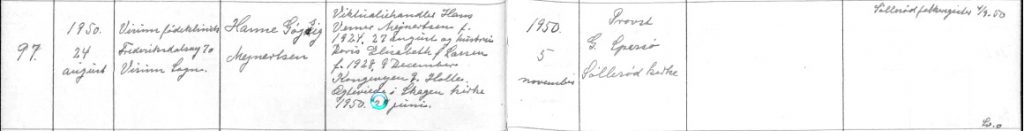 97.
1950.
24
august
Virum fødeklinik
Frederiksdalsvej 70
Virum Sogn.
Hanne
Mejnertsen
Viktualiehandler Hans
Verner Mejnertsen f.
1924. 27 august og hustru
Doris Elisabeth f. Larsen
f. 1928. 9 December
Kongevejen 9. Holte.
Ægteviede i Skagen kirke
1950. 24 juni.
1950.
5
november
Provst
G.
Søllerød kirke
Søllerød folkeregister 4/9. 50